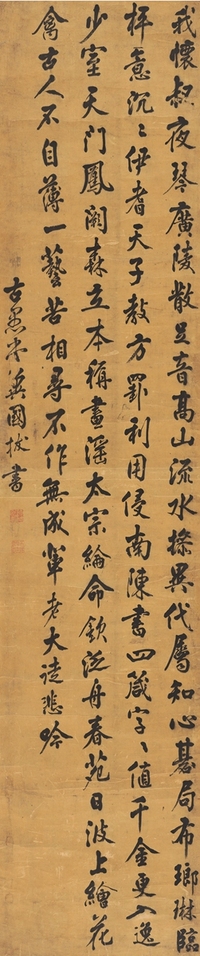 我懷叔夜琴廣陵散足音高山流水操異代屬知心碁局布瑯琳臨
枰意沉〻伊耆天子教方罫利用侵南陳書四箴字〻值千金更入逸
少室天門鳳闕森立本稱畫滛太宗綸命欽泛舟春苑日波上繪花
禽古人不自薄一藝苦相尋不作無成輩老大徒悲吟
古愚國書